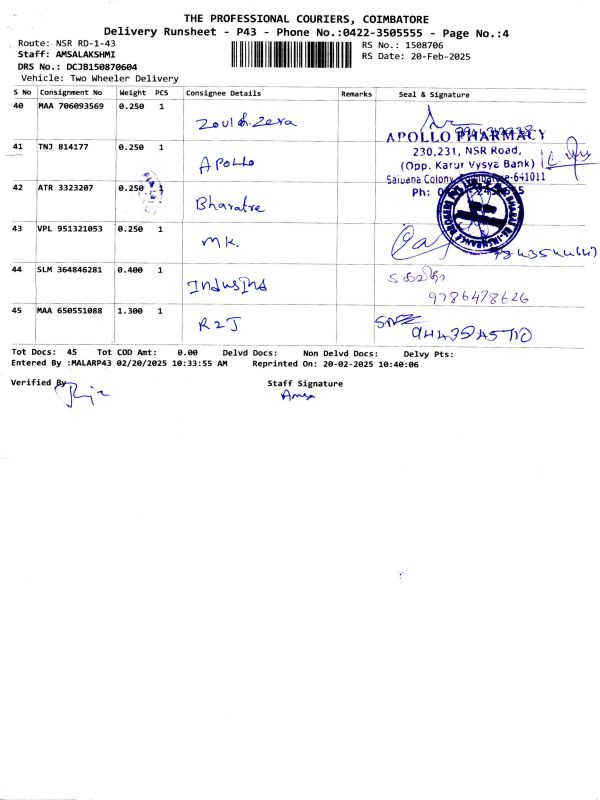 THE PROFESSIONAL COURIERS, COIMBATORE
Delivery Runsheet - P43 - Phone No.:0422-3505555 - Page No.:4
Route: NSR RD-1-43
RS No.: 1508706
Staff: AMSALAKSHMI
RS Date: 20-Feb-2025
DRS No.: DCJB150870604
Vehicle: Two Wheeler Delivery
S No Consignment No Weight PCS Consignee Details Remarks Seal & Signature
40 MAA 706093569 0.250 1
41 TNJ 814177 0.250 1 Apollo
APOLLO PHARMACY
230,231, NSR Road,
(Opp. Karur Vysya Bank)
Saibana Colony, Coimbatore-641011
Ph:
42 ATR 3323207 0.250 1
43 VPL 951321053 0.250 1 MK.
44 SLM 364846281 0.400 1 IndusInd
9786478626
45 MAA 650551088 1.300 1 R2J
Tot Docs: 45 Tot COD Amt: 0.00 Delvd Docs: Non Delvd Docs: Delvy Pts:
Entered By :MALARP43 02/20/2025 10:33:55 AM Reprinted On: 20-02-2025 10:40:06
Verified By Staff Signature
Amsa